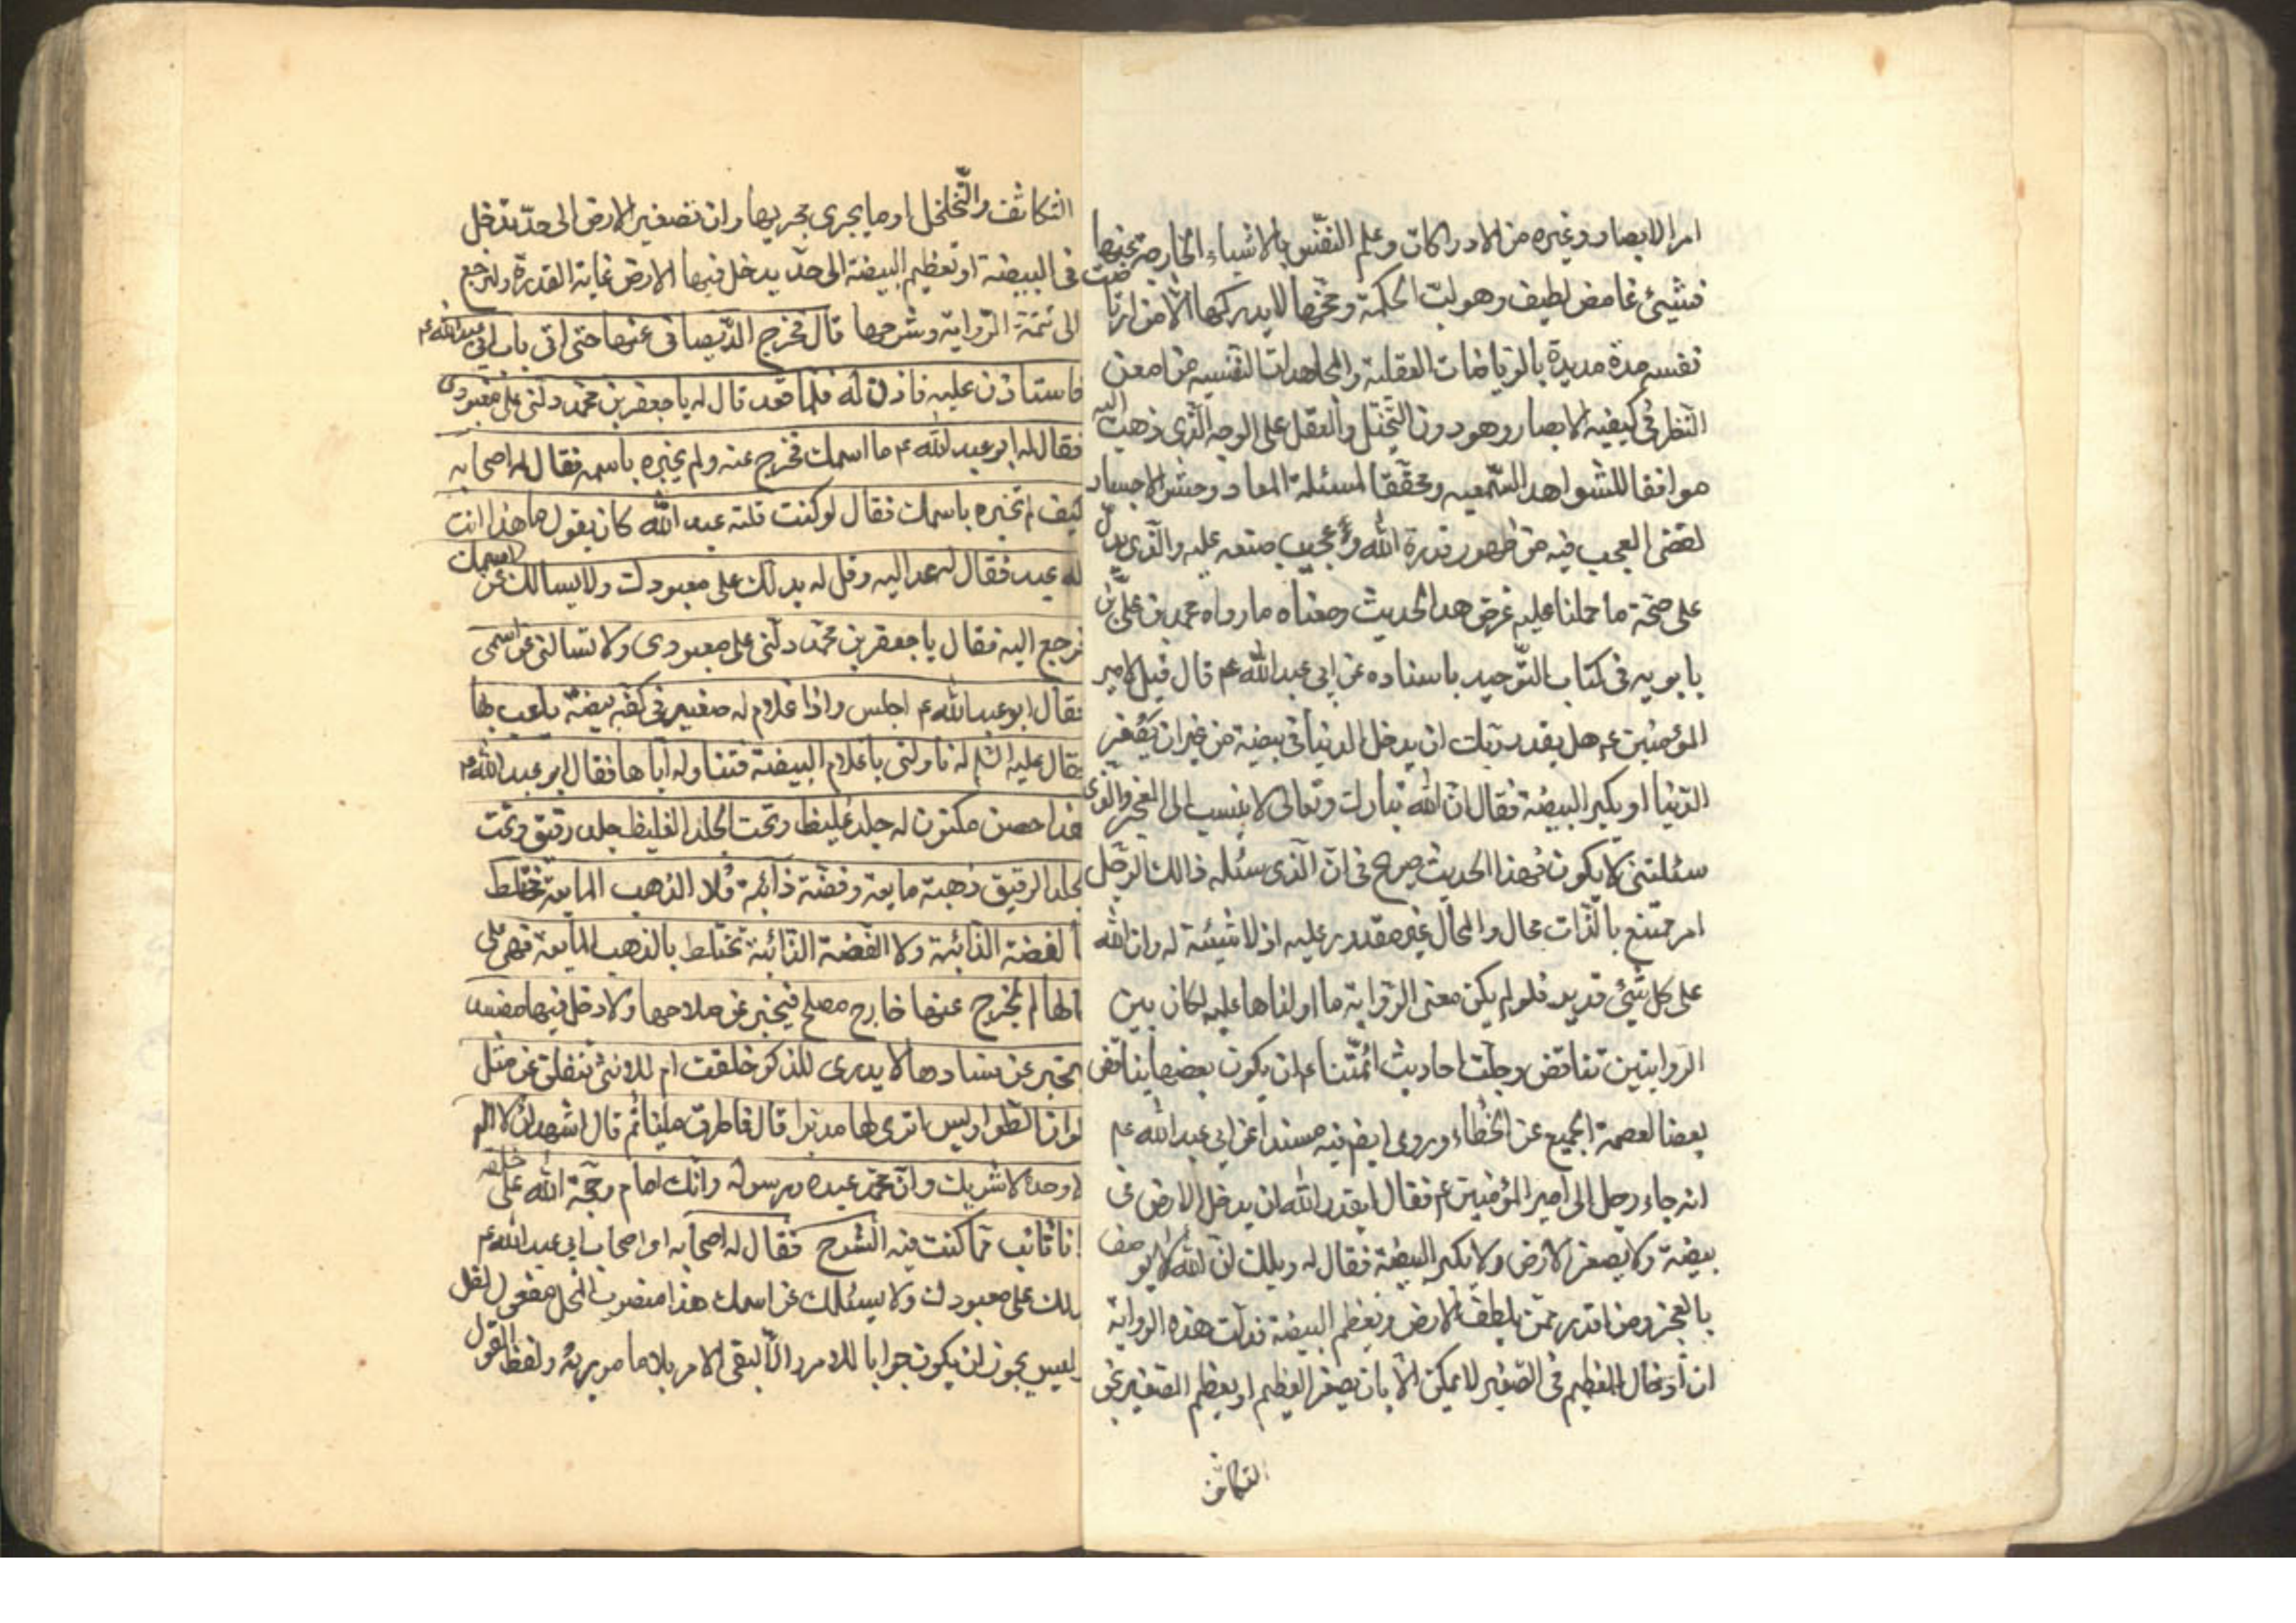 امر الابصار وغيره من الادراكات وعلم النفس بالاشياء الخارجة عنها
فشيئ غامض لطيف وهو لب الحكمة ومخها لا يدركها الا من ارتاضت
نفسه مدة مديدة بالرياضات العقلية والمجاهدات النفسية من امعن
النظر في كيفية الابصار وهو دون التخيل والعقل على الوجه الذى ذهبت اليه
موافقا للشواهد السمعيه ومحققا لمسئلة المعاد وحشر الاجساد
لقضى العجب فيه من ظهور قدرة الله وعجيب صنعه عليه والذى يدل
على صحة ما حملنا عليه غرض هذا الحديث ومعناه ما رواه محمد بن على بن
بابويه فى كتاب التوحيد باسناده عن ابى عبد الله عم قال قيل لامير
المؤمنين عم هل يقدر ربك ان يدخل الدنيا فى بيضة من غير ان يصغر
الدنيا او يكبر البيضة فقال ان الله تبارك وتعالى لا ينسب الى العجز والذى
سئلتنى لا يكون فهذا الحديث صريح فى ان الذى سئله ذالك الرجل
امر ممتنع بالذات محال والمحال غير مقدور عليه اذ لا شيئية له وان الله
على كل شئ قدير فلو لم يكن معنى الرواية ما اولناها عليه لكان بين
الروايتين تناقض وجلت احاديث ائمتنا عم ان يكون بعضها يناقض
بعضا لعصمة الجميع عن الخطاء وروى ايضم فيه مسندا عن ابى عبد الله عم
انه جاء رجل الى امير المؤمنين عم فقال ايقدر الله ان يدخل الارض فى
بيضة ولا يصغر الارض ولا يكبر البيضة فقال له ويلك ان الله لا يوصف
بالعجز ومن اقدر ممن يلطف الارض ويعظم البيضة فدلت هذه الرواية
ان ادخال العظيم فى الصغير لا يمكن الا بان يصغر العظيم او يعظم الصغير بنحو
التكاثف
التكاثف والتخلخل او ما يجرى مجريها وان تصغير الارض الى حد تدخل
فى البيضة او تعظيم البيضة الى حد يدخل فيها الارض غاية القدرة ولنرجع
الى تتمة الرواية وشرحها قال فخرج الديصانى عنها حتى اتى باب ابى عبد الله عم
فاستاذن عليه فاذن له فلما قعد قال له يا جعفر بن محمد دلنى على معبودى
فقال له ابو عبد الله عم ما اسمك فخرج عنه ولم يخبره باسمه فقال له اصحابه
كيف لم تخبره باسمك فقال لو كنت قلته عبد الله كان يقول ما هذا انت
له عبد فقال له عد اليه وقل له يدلك على معبودك ولا يسالك عن اسمك
فرجع اليه فقال يا جعفر بن محمد دلنى على معبودى ولا تسالنى عن اسمى
فقال ابو عبد الله عم اجلس واذا غلام له صغير فى كفه بيضة يلعب بها
فقال عليه السلم له ناولنى يا غلام البيضة فتناوله اياها فقال ابو عبد الله عم
هذا حصن مكنون له جلد غليظ وتحت الجلد الغليظ جلد رقيق وتحت
الجلد الرقيق ذهبة مايعة وفضة ذائبة فلا الذهب المايعة تختلط
بالفضة الذائبة ولا الفضة الذائبة تختلط بالذهب المايعة فهى على
حالها لم يخرج عنها خارج مصلح فيخبر عن صلاحها ولا دخل فيها مفسد
فيخبر عن فسادها لا يدرى للذكر خلقت ام للانثى تنفلق عن مثل
الوان الطواويس اترى لها مدبرا قال فاطرق مليا ثم قال اشهد ان لا اله
الا وحده لا شريك وان محمد عبده ورسوله وانك امام وحجة الله على خلقه
وانا تائب مما كنت فيه الشرح فقال له اصحابه او اصحاب ابى عبد الله عم
يدلك على معبودك ولا يسئلك عن اسمك هذا منصوب المحل مفعول لقل
وليس يجوز ان يكون جوابا للامر والا لبقى الامر بلا مامور به ولفظ القول